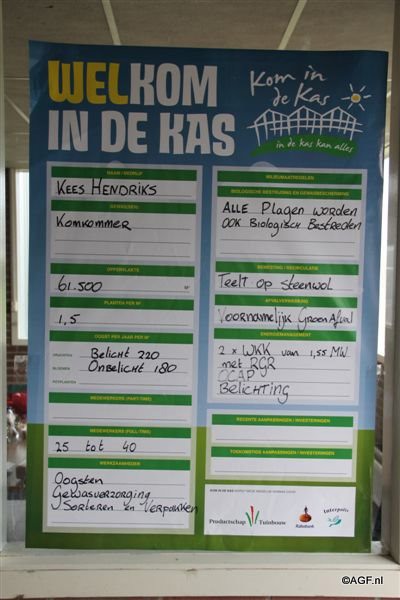 WELKOM
IN DE KAS
Kom in
de Kas
in de kas kan alles
NAAM / BEDRIJF
KEES HENDRIKS
GEWAS(SEN)
Komkommer
OPPERVLAKTE
61.500 M²
PLANTEN PER M²
1,5
OOGST PER JAAR PER M²
VRUCHTEN Belicht 220
BLOEMEN Onbelicht 180
POTPLANTEN
MEDEWERKERS (PART-TIME)
MEDEWERKERS (FULL-TIME)
25 tot 40
WERKZAAMHEDEN
Oogsten
Gewasverzorging
Sorteren en Verpakken
MILIEUMAATREGELEN
BIOLOGISCHE BESTRIJDING EN GEWASBESCHERMING
ALLE Plagen worden
OOK Biologisch Bestreden
BEMESTING / RECIRCULATIE
Teelt op Steenwol
AFVALVERWERKING
Voornamelijk Groen Afval
ENERGIEMANAGEMENT
2 x WKK van 1,55 MW
met RGR
OCAP
Belichting
RECENTE AANPASSINGEN / INVESTERINGEN
TOEKOMSTIGE AANPASSINGEN / INVESTERINGEN
Productschap Tuinbouw
Rabobank
Interpolis
©AGF.nl